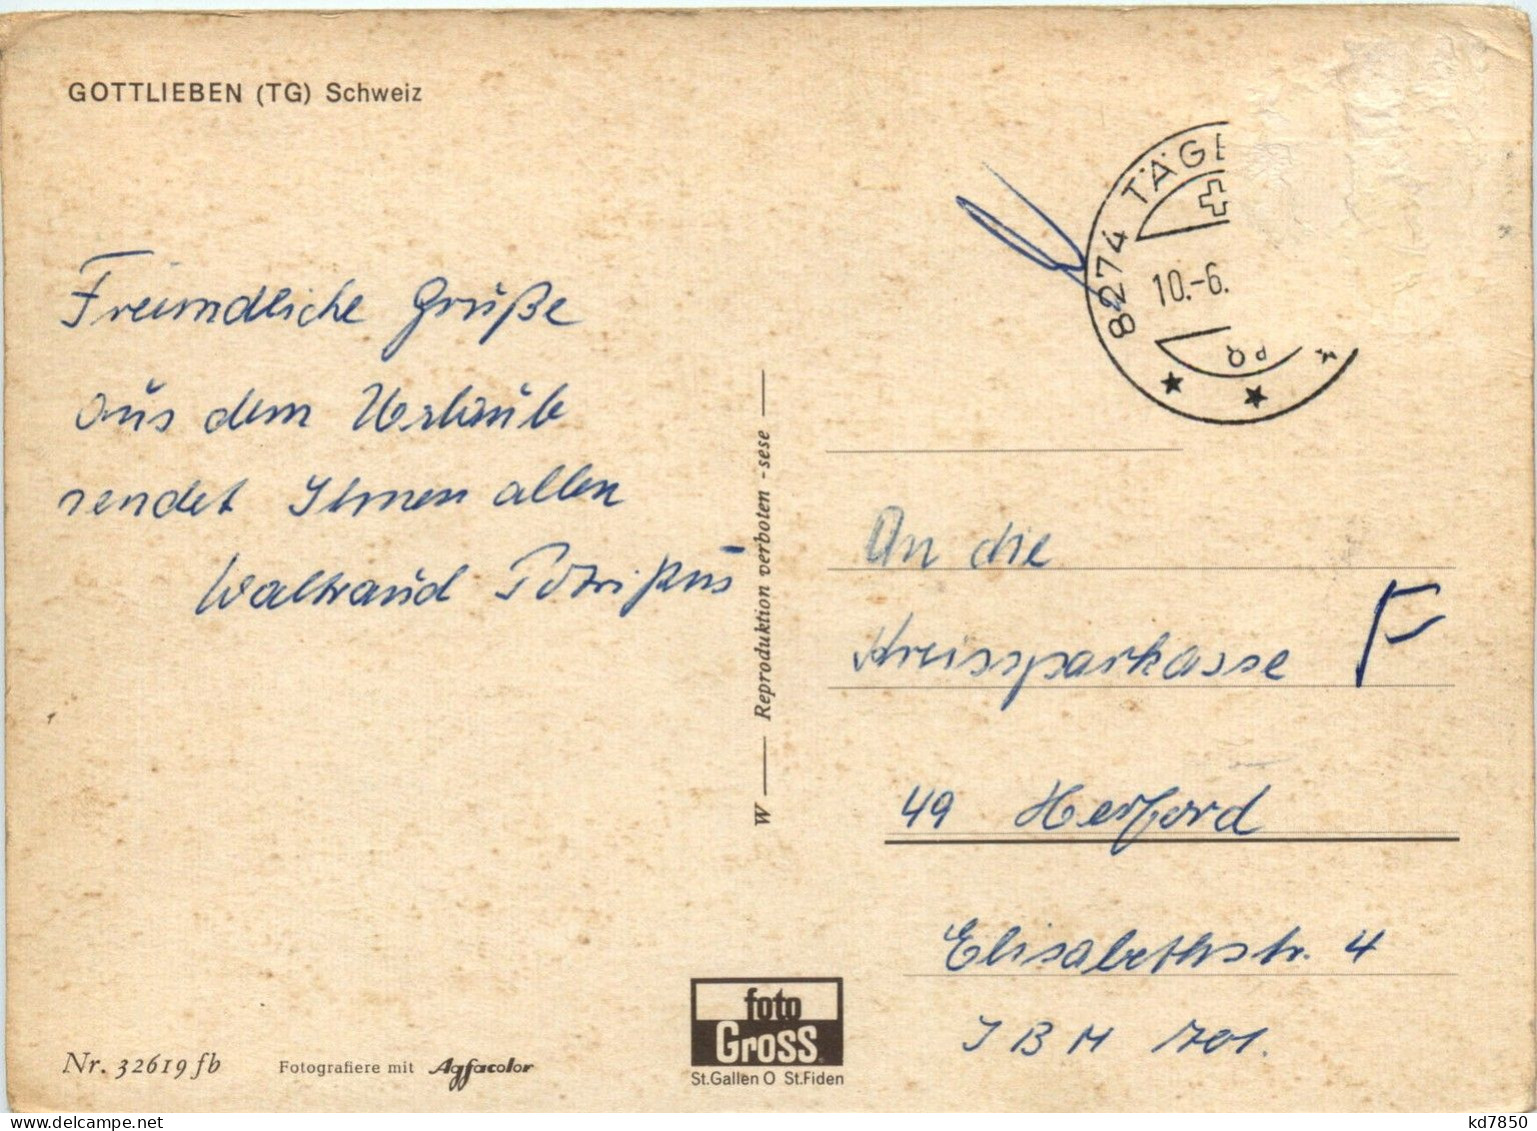 GOTTLIEBEN (TG) Schweiz
8274 TÄGE
10.-6.
Freundliche Grüße
aus dem Urlaub
sendet Ihnen allen
Waltraud
W — Reproduktion verboten - sese —
An die
Kreissparkasse F
49 Herford
Elisabethstr. 4
IBM 701.
foto
Gross
St.Gallen O St.Fiden
Nr. 32619 fb Fotografiere mit Agfacolor
kd7850